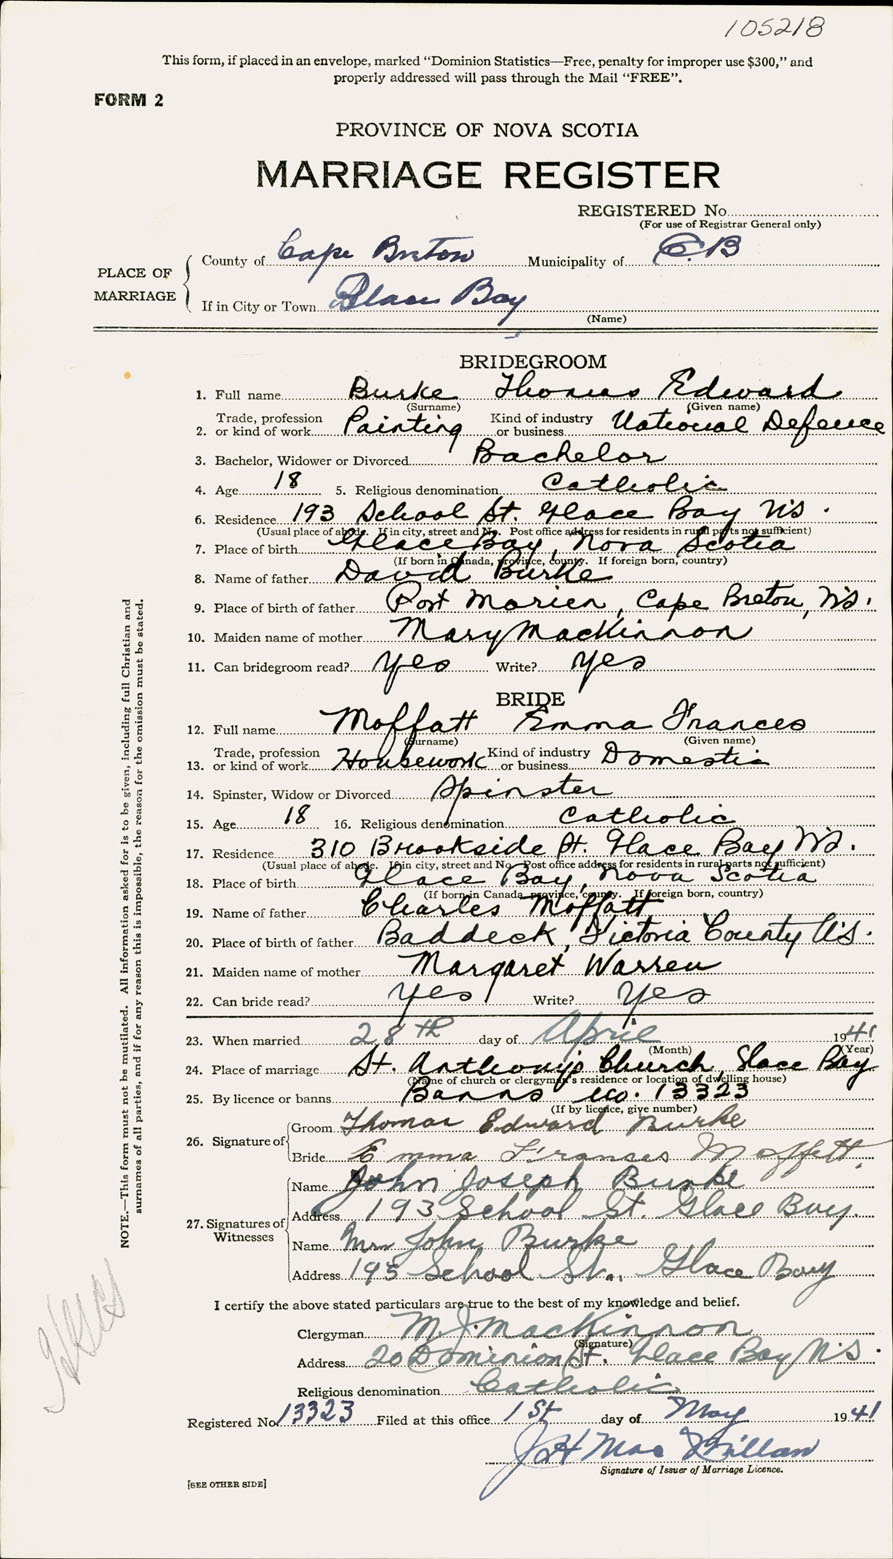 105218
This form, if placed in an envelope, marked “Dominion Statistics—Free, penalty for improper use $300,” and
properly addressed will pass through the Mail “FREE”.
FORM 2
PROVINCE OF NOVA SCOTIA
MARRIAGE REGISTER
REGISTERED No.
(For use of Registrar General only)
PLACE OF MARRIAGE
County of Cape Breton Municipality of C.B
If in City or Town Glace Bay
(Name)
BRIDEGROOM
1. Full name Burke Thomas Edward
(Surname) (Given name)
2. Trade, profession or kind of work Painting Kind of industry or business National Defence
3. Bachelor, Widower or Divorced Bachelor
4. Age 18 5. Religious denomination Catholic
6. Residence 193 School St. Glace Bay N.S.
(Usual place of abode. If in city, street and No. Post office address for residents in rural parts not sufficient)
7. Place of birth Glace Bay, Nova Scotia
(If born in Canada, province, county. If foreign born, country)
8. Name of father David Burke
9. Place of birth of father Port Morien, Cape Breton, N.S.
10. Maiden name of mother Mary MacKinnon
11. Can bridegroom read? yes Write? yes
BRIDE
12. Full name Moffatt Emma Frances
(Surname) (Given name)
13. Trade, profession or kind of work Housework Kind of industry or business Domestic
14. Spinster, Widow or Divorced Spinster
15. Age 18 16. Religious denomination Catholic
17. Residence 310 Brookside St. Glace Bay N.S.
(Usual place of abode. If in city, street and No. Post office address for residents in rural parts not sufficient)
18. Place of birth Glace Bay, Nova Scotia
(If born in Canada, province, county. If foreign born, country)
19. Name of father Charles Moffatt
20. Place of birth of father Baddeck, Victoria County N.S.
21. Maiden name of mother Margaret Warren
22. Can bride read? yes Write? yes
23. When married 28th day of April 1941
(Month) (Year)
24. Place of marriage St. Anthony's Church, Glace Bay
(Name of church or clergyman's residence or location of dwelling house)
25. By licence or banns Banns no. 13323
(If by licence, give number)
26. Signature of
Groom Thomas Edward Burke
Bride Emma Franses Moffett
27. Signatures of Witnesses
Name John Joseph Burke
Address 193 School St. Glace Bay.
Name Mrs John Burke
Address 193 School St., Glace Bay
I certify the above stated particulars are true to the best of my knowledge and belief.
Clergyman M. J. MacKinnon
(Signature)
Address 20 Dominion St. Glace Bay N.S.
Religious denomination Catholic
Registered No. 13323 Filed at this office 1st day of May 1941
J H MacMillan
Signature of Issuer of Marriage Licence.
[SEE OTHER SIDE]
NOTE.—This form must not be mutilated. All information asked for is to be given, including full Christian and
surnames of all parties, and if for any reason this is impossible, the reason for the omission must be stated.